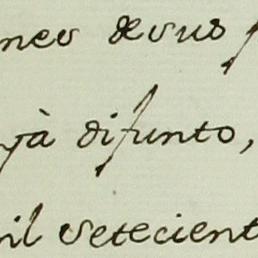 nes de sus
yà difunto,
il setecient